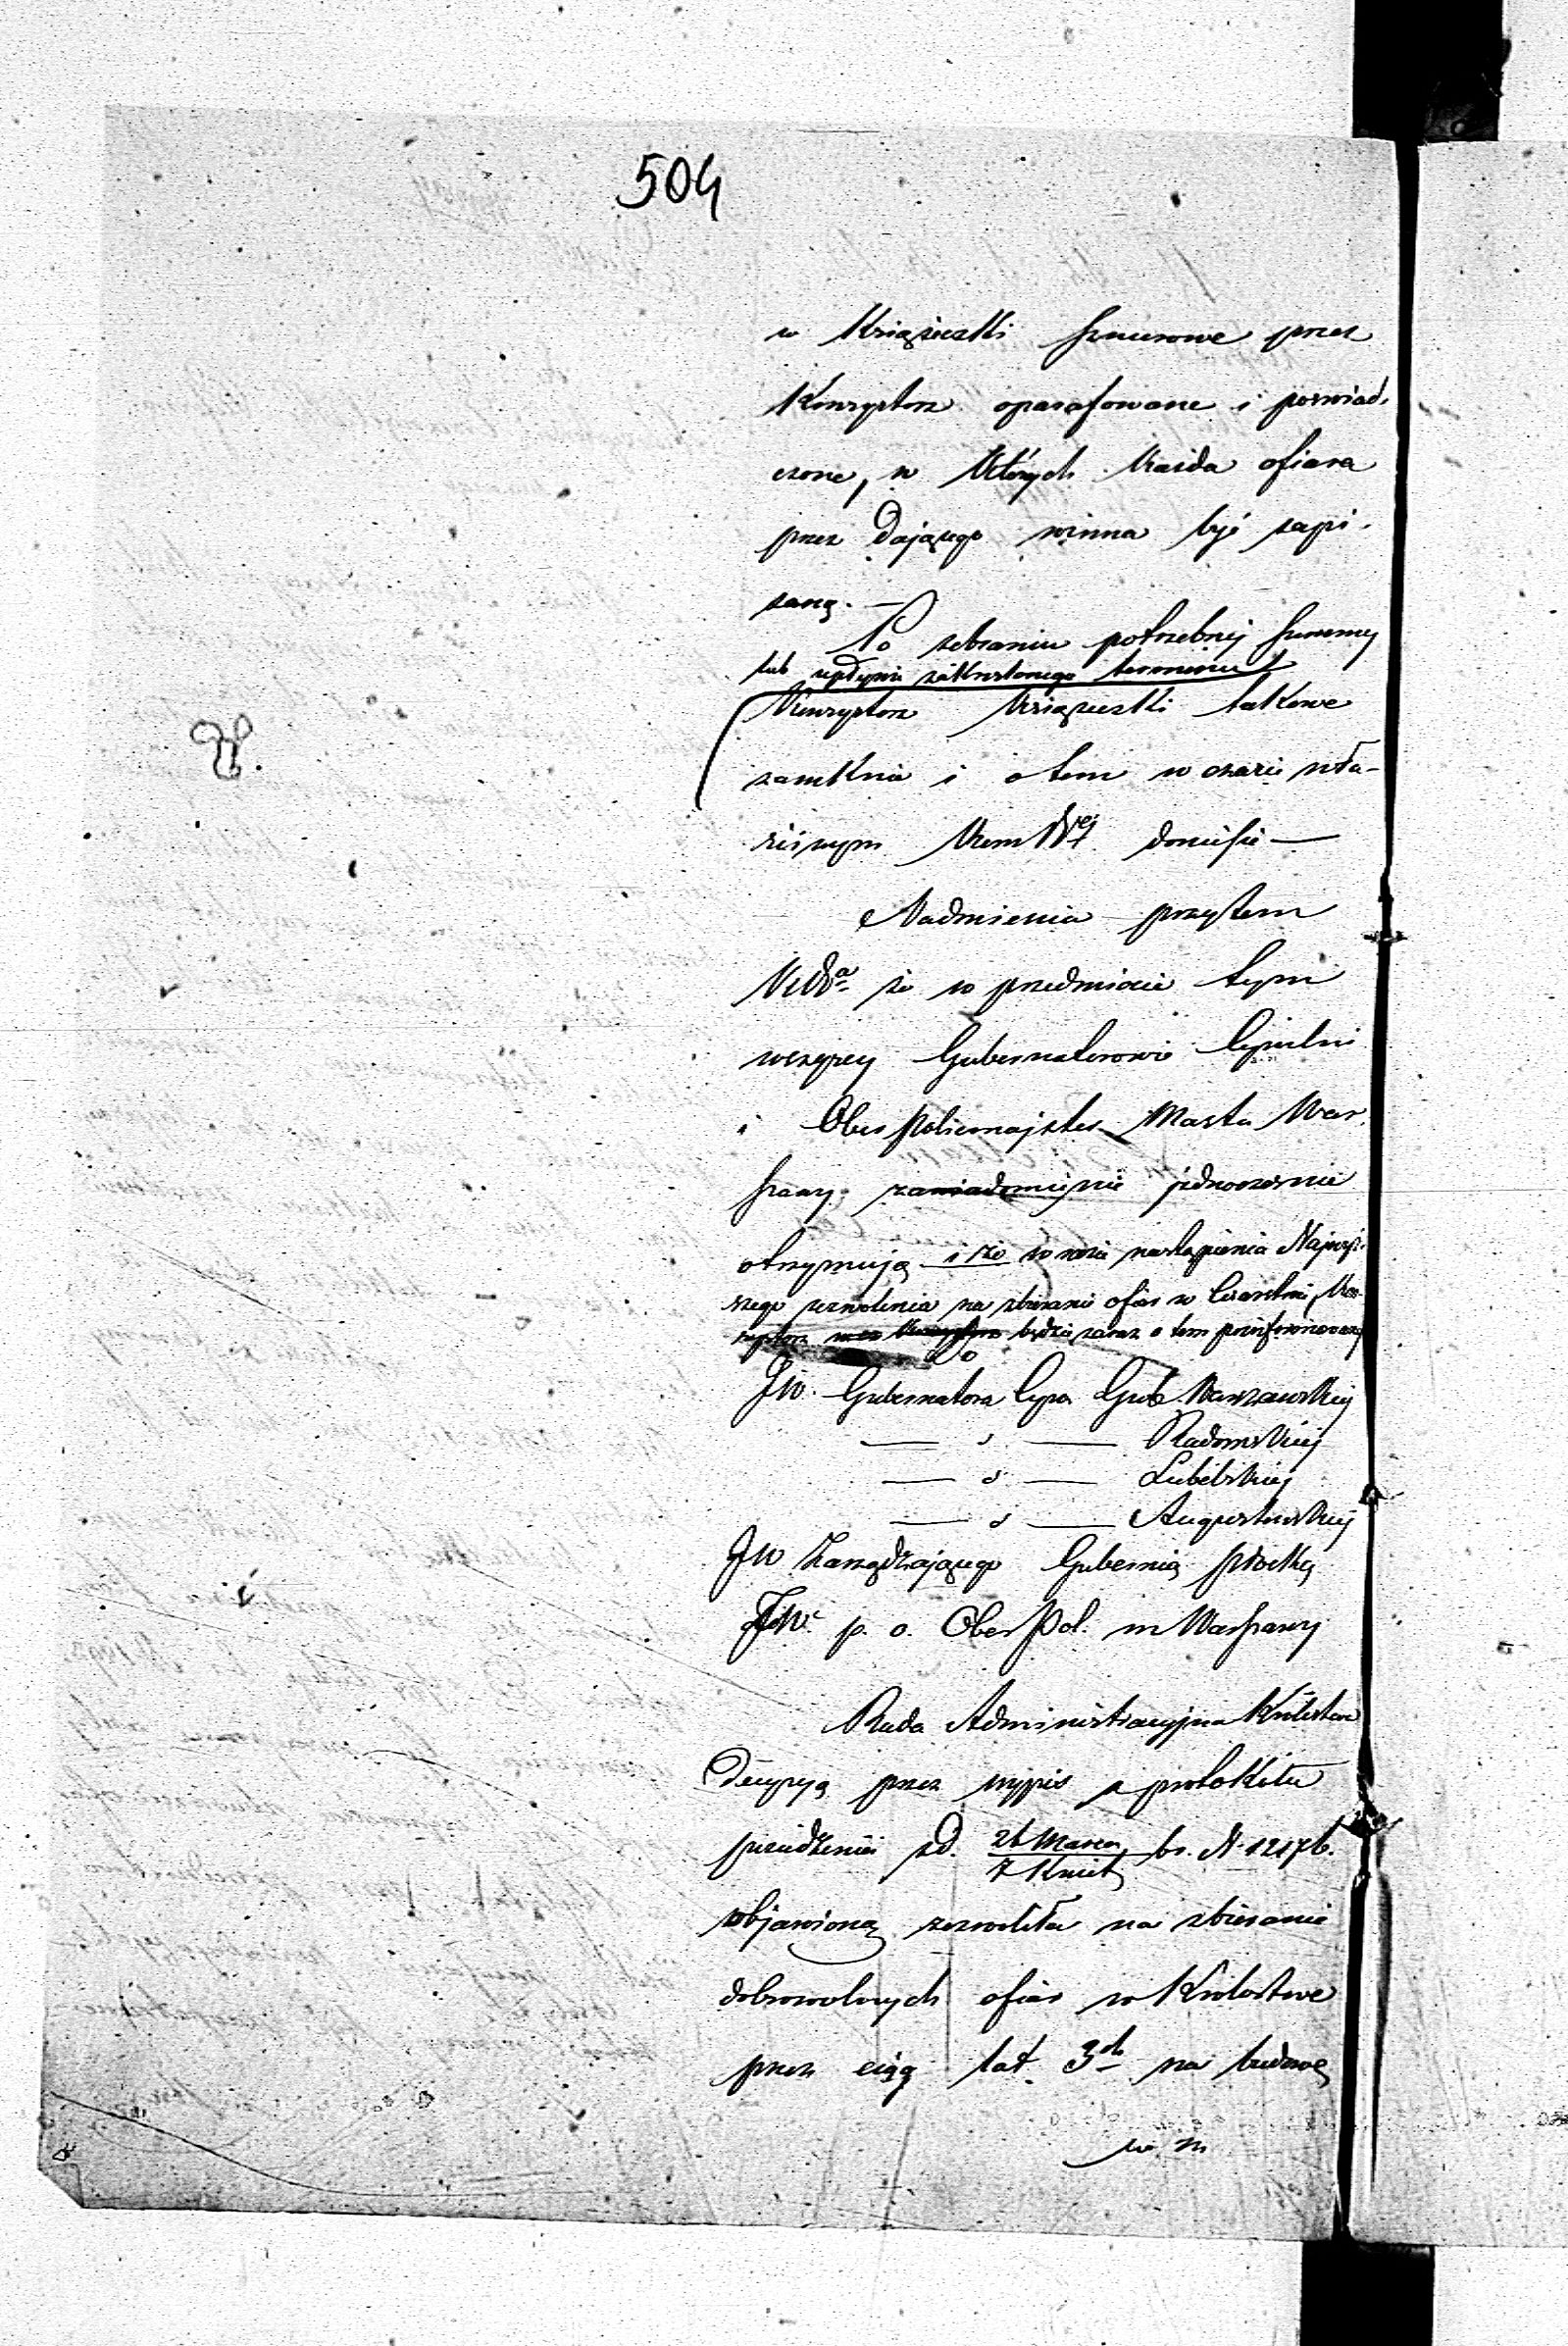 504
w Książeczki sznurowe przez
Konsystorz oparafowane i poświad-
czone, w których każda ofiara
przez Dającego winna być zapi-
saną. —
Po zebraniu potrzebnej summy
lub upływie zakreślonego terminu
Konsystorz książeczki takowe
zamknie i o tem w czasie wła-
ściwym Kom Rej doniesie —
Nadmienia przytem
że w przedmiocie tym
wszyscy Gubernatorowie Cywilni
i Ober Policmajster Miasta War-
szawy jednocześnie
otrzymują i że w razie nastąpienia Najwyż-
szego zezwolenia na zbieranie ofiar w Cesarstwie, Kon-
systorz będzie zaraz o tem poinformowany
Do
JW. Gubernatora Cyw. Gub. Warszawskiej
— " — Radomskiej
— " — Lubelskiej
— " — Augustowskiej
JW Zarządzającego Gubernią Płocką
JW. p. o. Ober Pol. m Warszawy
Rada Administracyjna Królestwa
Decyzyą przez wypis z protokółu
posiedzenia z d. 26 Marca / 7 Kwiet br. N. 12176.
objawioną zezwoliła na zbieranie
dobrowolnych ofiar w Królestwie
przez ciąg lat 3ch na budowę
w m